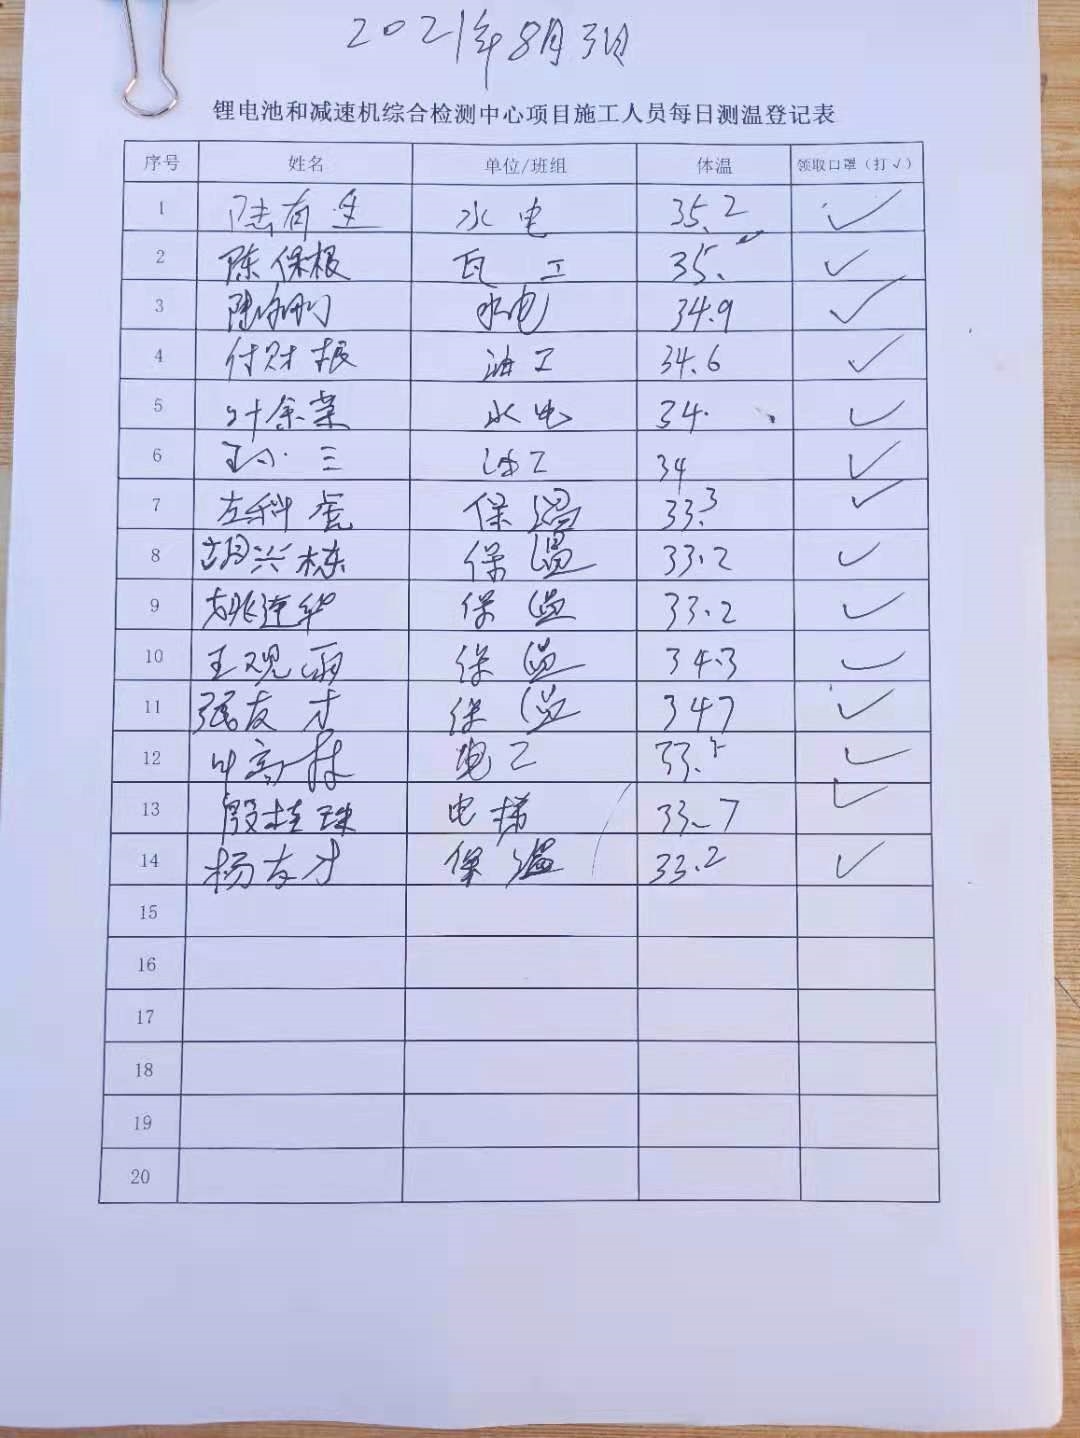 2021年8月3日
锂电池和减速机综合检测中心项目施工人员每日测温登记表
序号 姓名 单位/班组 体温 领取口罩（打√）
1 陆有 水电 35.2 √
2 陈保根 瓦工 35. √
3 水电 34.9 √
4 付财根 油工 34.6 √
5 叶余荣 水电 34. √
6 三 油工 34 √
7 左科 保温 33.3 √
8 胡兴栋 保温 33.2 √
9 姚连华 保温 33.2 √
10 王观雨 保温 34.3 √
11 张友才 保温 347 √
12 叶高林 电工 33. √
13 殷桂珠 电梯 33.7 √
14 杨友才 保温 33.2 √
15
16
17
18
19
20